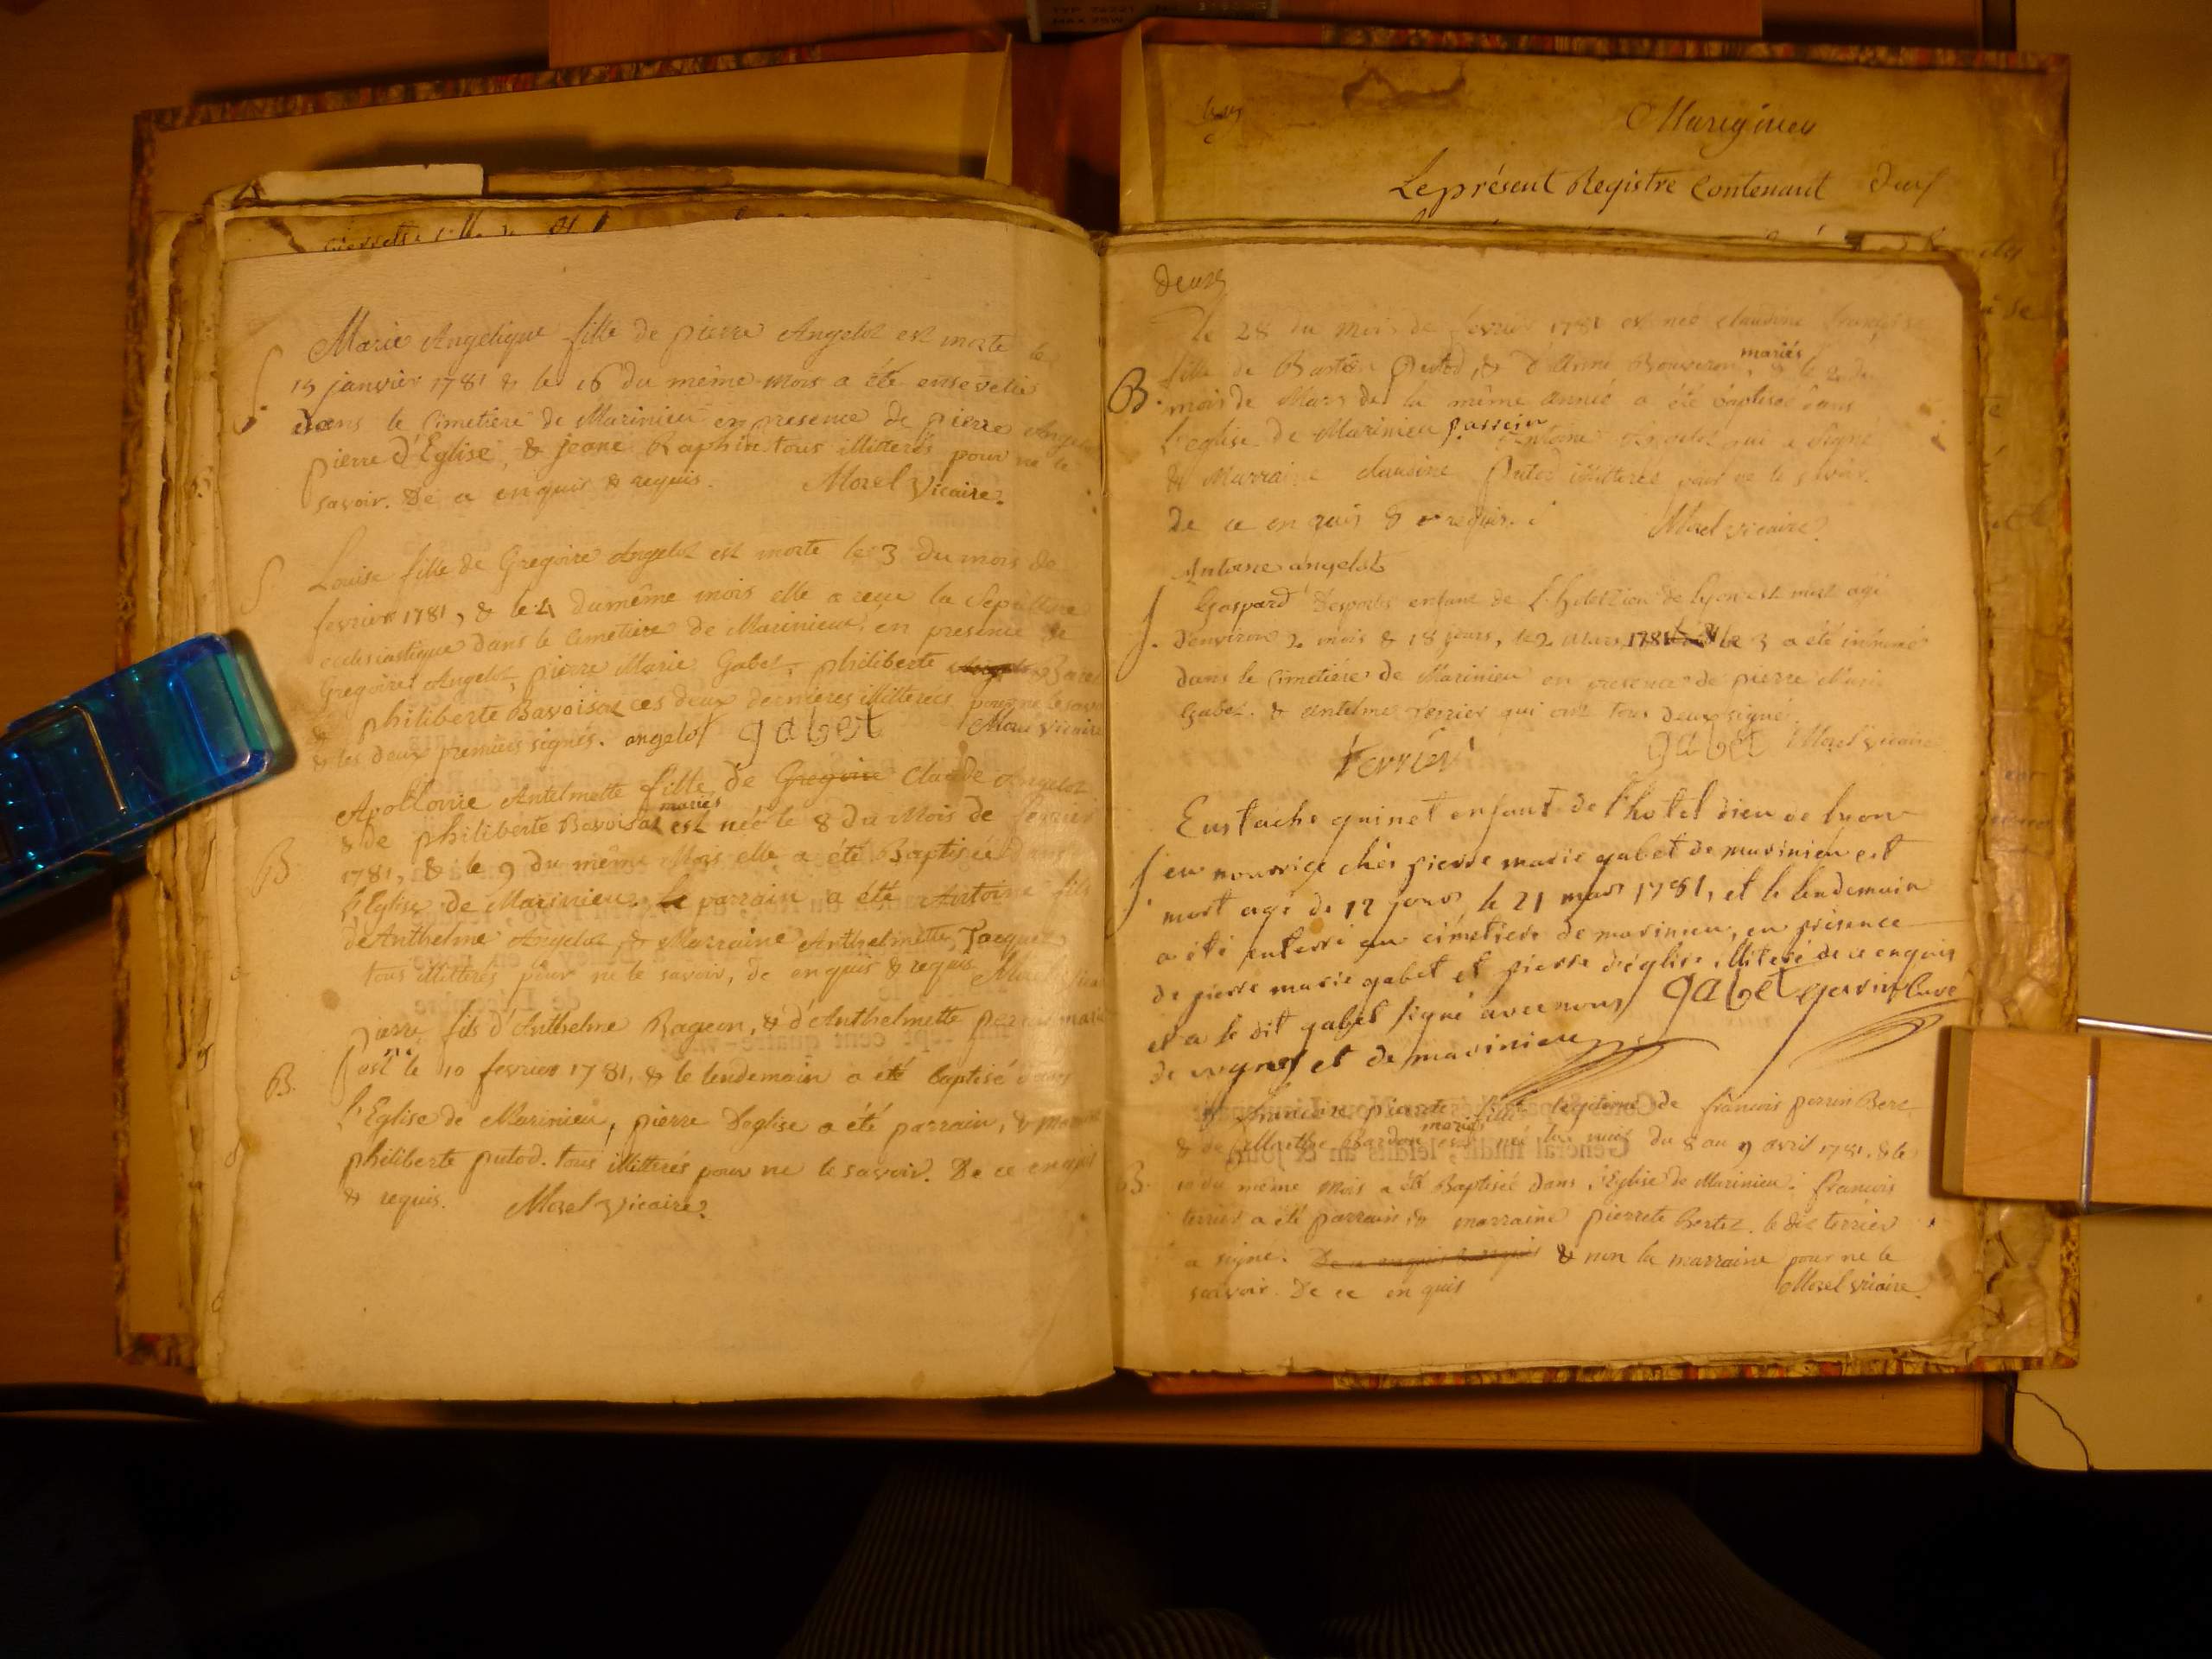 Marie Angelique fille de pierre Angeloz est morte le
15 janvier 1781 & le 16 du même mois a été ensevelie
dans le Cimetiere de Marinieu en presence de pierre Angeloz
pierre d'Eglise, & jeane Raphin tous illitterés pour ne le
savoir. De ce enquis & requis. Morel Vicaire.
S
Louise fille de Gregoire Angeloz est morte le 3 du mois de
fevrier 1781, & le 4 du même mois elle a reçu la Sepulture
ecclesiastique dans le Cimetiere de Marinieu, en presence de
Gregoire Angeloz, pierre Marie Gabet, philiberte
& philiberte Bavoisat ces deux dernieres illitterées pour ne le savoir
& les deux premiers signés. angelot gabet Morel vicaire
Apollonie Antelmette fille de Gregoire Claude Angeloz
& de philiberte Bavoisat mariés est née le 8 du Mois de fevrier
B
1781, & le 9 du même Mois elle a été Baptisée dans
l'Eglise de Marinieu. Le parrain a été Antoine fils
de Anthelme Angeloz & Marraine Anthelmette Jacquet
tous illitterés pour ne le savoir, de enquis & requis Morel Vicaire
pierre fils d'Anthelme Rageon, & d'Anthelmette perrin mariés
est né le 10 fevrier 1781, & le lendemain a été baptisé dans
B.
l'Eglise de Marinieu, pierre Deglise a été parrain, & marraine
philiberte putod. tous illitterés pour ne le savoir. De ce enquis
& requis. Morel Vicaire.
Marignieu
Le présent Registre Contenant deux
deux
Le 28 du mois de fevrier 1781 est née claudine françoise
fille de Bastien Putod, & d'Anne Bouveron, mariés & le 2 du
B.
mois de Mars de la même année a été baptisée dans
l'eglise de Marinieu parrein Antoine Angeloz qui a signé
& Marraine claudine Putod illitterée pour ne le savoir.
de ce en quis & requis. Morel vicaire.
Antoine angelot
Gaspard Desportes enfant de l'hotel Dieu de lyon est mort agé
d'environ 2 mois & 18 jours, le 2 Mars 1781 & le 3 a été inhumé
dans le Cimetière de Marinieu en presence de pierre Marie
Gabet. & antelme Terrier qui ont tous deux signé.
Terrier gabet Morel vicaire
Eustache guinet enfant de l'hotel dieu de lyon
en nourrice chés pierre marie gabet de marinieu est
mort agé de 12 jours le 21 mars 1781, et le lendemain
a été enterré au cimetiere de marinieu, en présence
de pierre marie gabet et pierre d'église illiteré de ce enquis
et a le dit gabet signé avec nous gabet curé
de et de marinieu
françoise pierrete fille legitime de francois perrin Berc
& de Bardon mariés est née la nuit du 8 au 9 avril 1781. & le
B.
10 du même mois a été Baptisée dans l'Eglise de Marinieu. francois
terrier a été parrain & marraine pierrete Bertet. le dit terrier
a signé. De ce enquis & requis & non la marraine pour ne le
savoir. De ce en quis Morel vicaire.